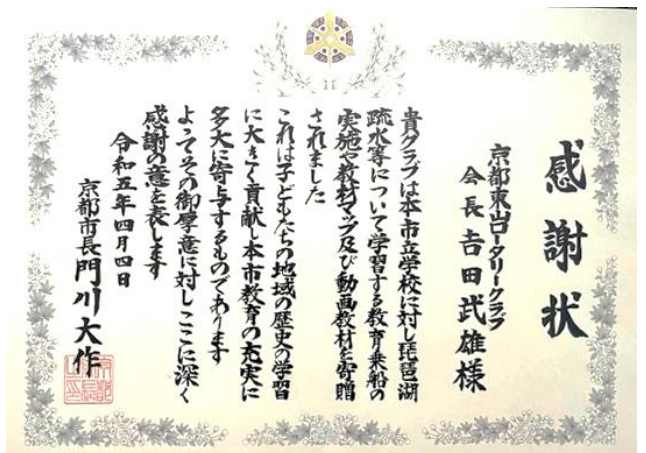 感謝状
京都東山ロータリークラブ
会長吉田武雄様
貴クラブは本市立学校に対し琵琶湖
疏水等について学習する教育乗船の
実施や教材マップ及び動画教材を寄贈
されました
これは子どもたちの地域の歴史の学習
に大きく貢献し本市教育の充実に
多大に寄与するものであります
よってその御厚意に対しここに深く
感謝の意を表します
令和五年四月四日
京都市長門川大作